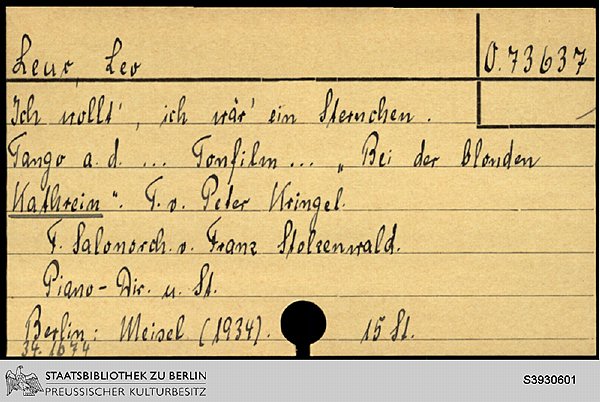 Leux, Leo
O. 73637
Ich wollt', ich wär' ein Sternchen.
Tango a. d. ... Tonfilm ... „Bei der blonden
Kathrein“. T. v. Peter Kringel.
F. Salonorch. v. Franz Stolzenwald.
Piano-Dir. u. St.
Berlin: Meisel (1934). 15 St.
34. 1674
STAATSBIBLIOTHEK ZU BERLIN
PREUSSISCHER KULTURBESITZ
S3930601